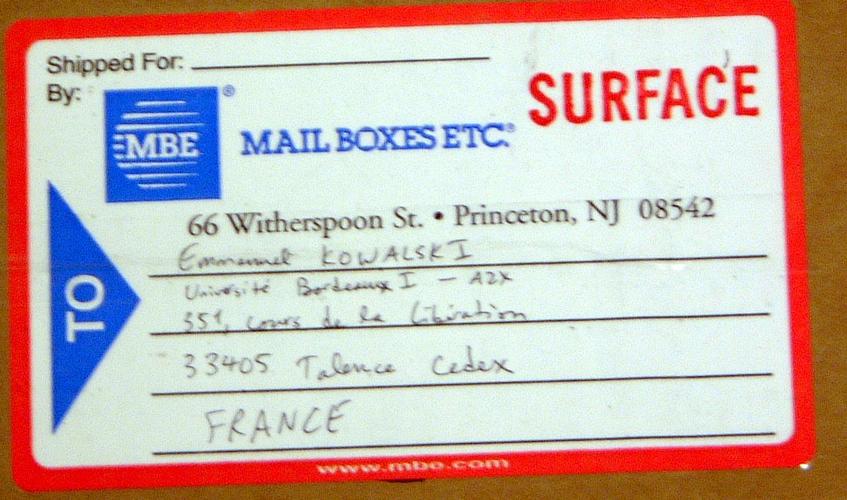 Shipped For:
SURFACE
By:
MBE ®
MAIL BOXES ETC.®
66 Witherspoon St. • Princeton, NJ 08542
TO
Emmanuel KOWALSKI
Université Bordeaux I - A2X
351, cours de la Libération
33405 Talence Cedex
FRANCE
www.mbe.com